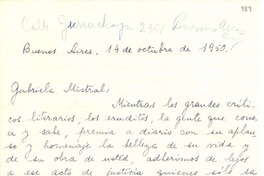 937
Calle Gurruchaga 2351 Buenos Aires
Buenos Aires, 14 de octubre de 1950.
Gabriela Mistral:
Mientras los grandes críti-
cos literarios, los eruditos, la gente que cono-
ce y sabe, premia a diario con su aplau-
so y homenaje la belleza de su vida y
de su obra de usted, adherimos de lejos
a ese acto de justicia quienes sólo sa